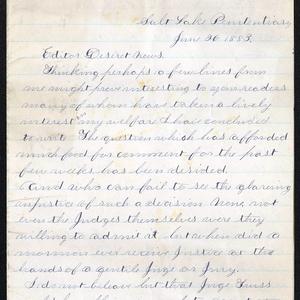 Salt Lake Penitentiary
June 26 1885.
Editor Deseret News.
Thinking perhaps a few lines from
me might prove interesting to your readers
many of whom have taken a lively
interest my welfare I have concluded
to write. The question which has afforded
much food for comment for the past
few weeks has been desided
And who can fail to see the glareing
injustice of such a decision None, not
even the Judges themselves were they
willing to admit it. but when did a
mormon ever receive Justice at the
hands of a gentile Juge or Jury.
I do not believe but that Juge